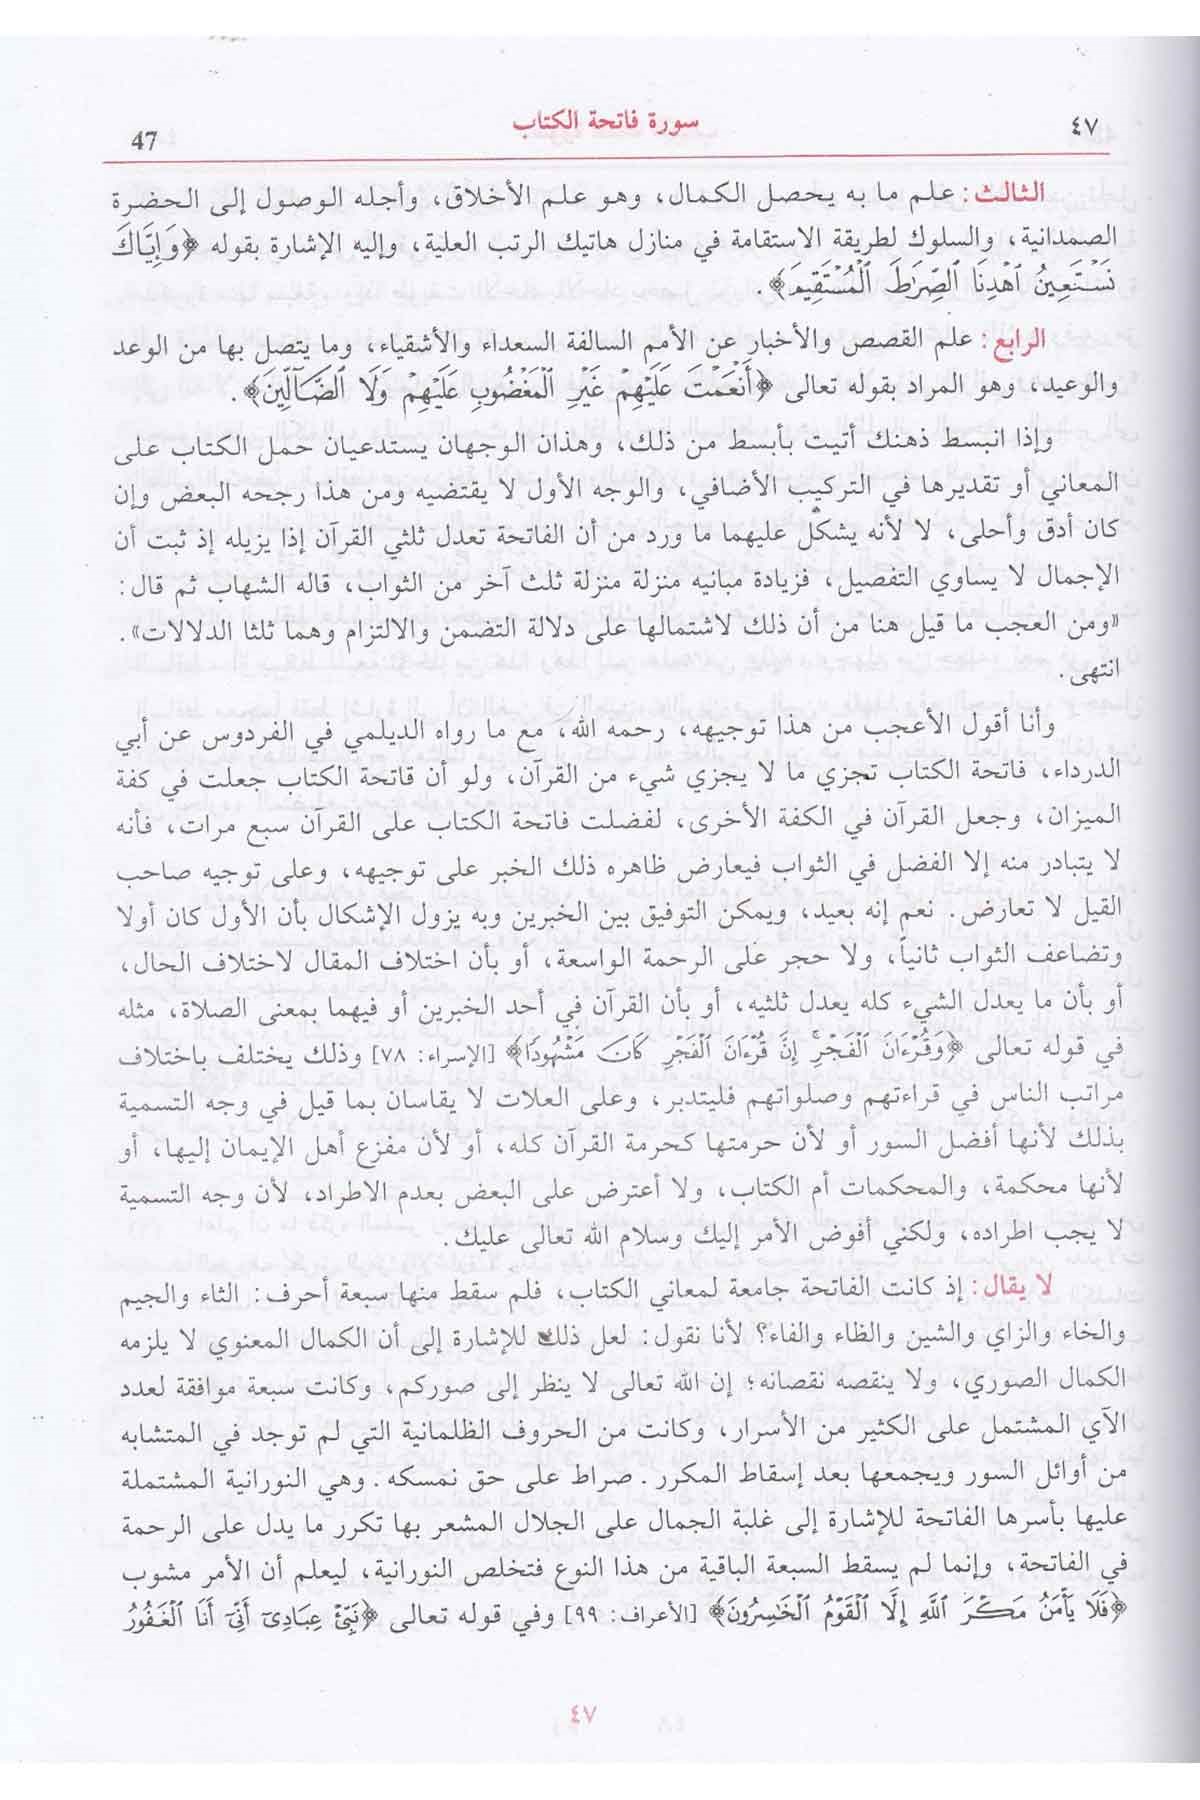 ٤٧ سورة فاتحة الكتاب 47
الثالث: علم ما به يحصل الكمال، وهو علم الأخلاق، وأجله الوصول إلى الحضرة
الصمدانية، والسلوك لطريقة الاستقامة في منازل هاتيك الرتب العلية، وإليه الإشارة بقوله ﴿وَإِيَّاكَ
نَسْتَعِينُ اهْدِنَا الصِّرَاطَ الْمُسْتَقِيمَ﴾.
الرابع: علم القصص والأخبار عن الأمم السالفة السعداء والأشقياء، وما يتصل بها من الوعد
والوعيد، وهو المراد بقوله تعالى ﴿أَنْعَمْتَ عَلَيْهِمْ غَيْرِ الْمَغْضُوبِ عَلَيْهِمْ وَلَا الضَّآلِّينَ﴾.
وإذا انبسط ذهنك أتيت بأبسط من ذلك، وهذان الوجهان يستدعيان حمل الكتاب على
المعاني أو تقديرها في التركيب الأضافي، والوجه الأول لا يقتضيه ومن هذا رجحه البعض وإن
كان أدق وأحلى، لا لأنه يشكل عليهما ما ورد من أن الفاتحة تعدل ثلثي القرآن إذا يزيله إذ ثبت أن
الإجمال لا يساوي التفصيل، فزيادة مبانيه منزلة منزلة ثلث آخر من الثواب، قاله الشهاب ثم قال:
«ومن العجب ما قيل هنا من أن ذلك لاشتمالها على دلالة التضمن والالتزام وهما ثلثا الدلالات».
انتهى.
وأنا أقول الأعجب من هذا توجيهه، رحمه الله، مع ما رواه الديلمي في الفردوس عن أبي
الدرداء، فاتحة الكتاب تجزي ما لا يجزي شيء من القرآن، ولو أن فاتحة الكتاب جعلت في كفة
الميزان، وجعل القرآن في الكفة الأخرى، لفضلت فاتحة الكتاب على القرآن سبع مرات، فأنه
لا يتبادر منه إلا الفضل في الثواب فيعارض ظاهره ذلك الخبر على توجيهه، وعلى توجيه صاحب
القيل لا تعارض. نعم إنه بعيد، ويمكن التوفيق بين الخبرين وبه يزول الإشكال بأن الأول كان أولا
وتضاعف الثواب ثانياً، ولا حجر على الرحمة الواسعة، أو بأن اختلاف المقال لاختلاف الحال،
أو بأن ما يعدل الشيء كله يعدل ثلثيه، أو بأن القرآن في أحد الخبرين أو فيهما بمعنى الصلاة، مثله
في قوله تعالى ﴿وَقُرْءَانَ الْفَجْرِ إِنَّ قُرْءَانَ الْفَجْرِ كَانَ مَشْهُودًا﴾ [الإسراء: ٧٨] وذلك يختلف باختلاف
مراتب الناس في قراءتهم وصلواتهم فليتدبر، وعلى العلات لا يقاسان بما قيل في وجه التسمية
بذلك لأنها أفضل السور أو لأن حرمتها كحرمة القرآن كله، أو لأن مفزع أهل الإيمان إليها، أو
لأنها محكمة، والمحكمات أم الكتاب، ولا أعترض على البعض بعدم الاطراد، لأن وجه التسمية
لا يجب اطراده، ولكني أفوض الأمر إليك وسلام الله تعالى عليك.
لا يقال: إذ كانت الفاتحة جامعة لمعاني الكتاب، فلم سقط منها سبعة أحرف: الثاء والجيم
والخاء والزاي والشين والظاء والفاء؟ لأنا نقول: لعل ذلك للإشارة إلى أن الكمال المعنوي لا يلزمه
الكمال الصوري، ولا ينقصه نقصانه؛ إن الله تعالى لا ينظر إلى صوركم، وكانت سبعة موافقة لعدد
الآي المشتمل على الكثير من الأسرار، وكانت من الحروف الظلمانية التي لم توجد في المتشابه
من أوائل السور ويجمعها بعد إسقاط المكرر. صراط على حق نمسكه. وهي النورانية المشتملة
عليها بأسرها الفاتحة للإشارة إلى غلبة الجمال على الجلال المشعر بها تكرر ما يدل على الرحمة
في الفاتحة، وإنما لم يسقط السبعة الباقية من هذا النوع فتخلص النورانية، ليعلم أن الأمر مشوب
﴿فَلَا يَأْمَنُ مَكْرَ اللَّهِ إِلَّا الْقَوْمُ الْخَاسِرُونَ﴾ [الأعراف: ٩٩] وفي قوله تعالى ﴿نَبِّئْ عِبَادِي أَنِّي أَنَا الْغَفُورُ
٤٧